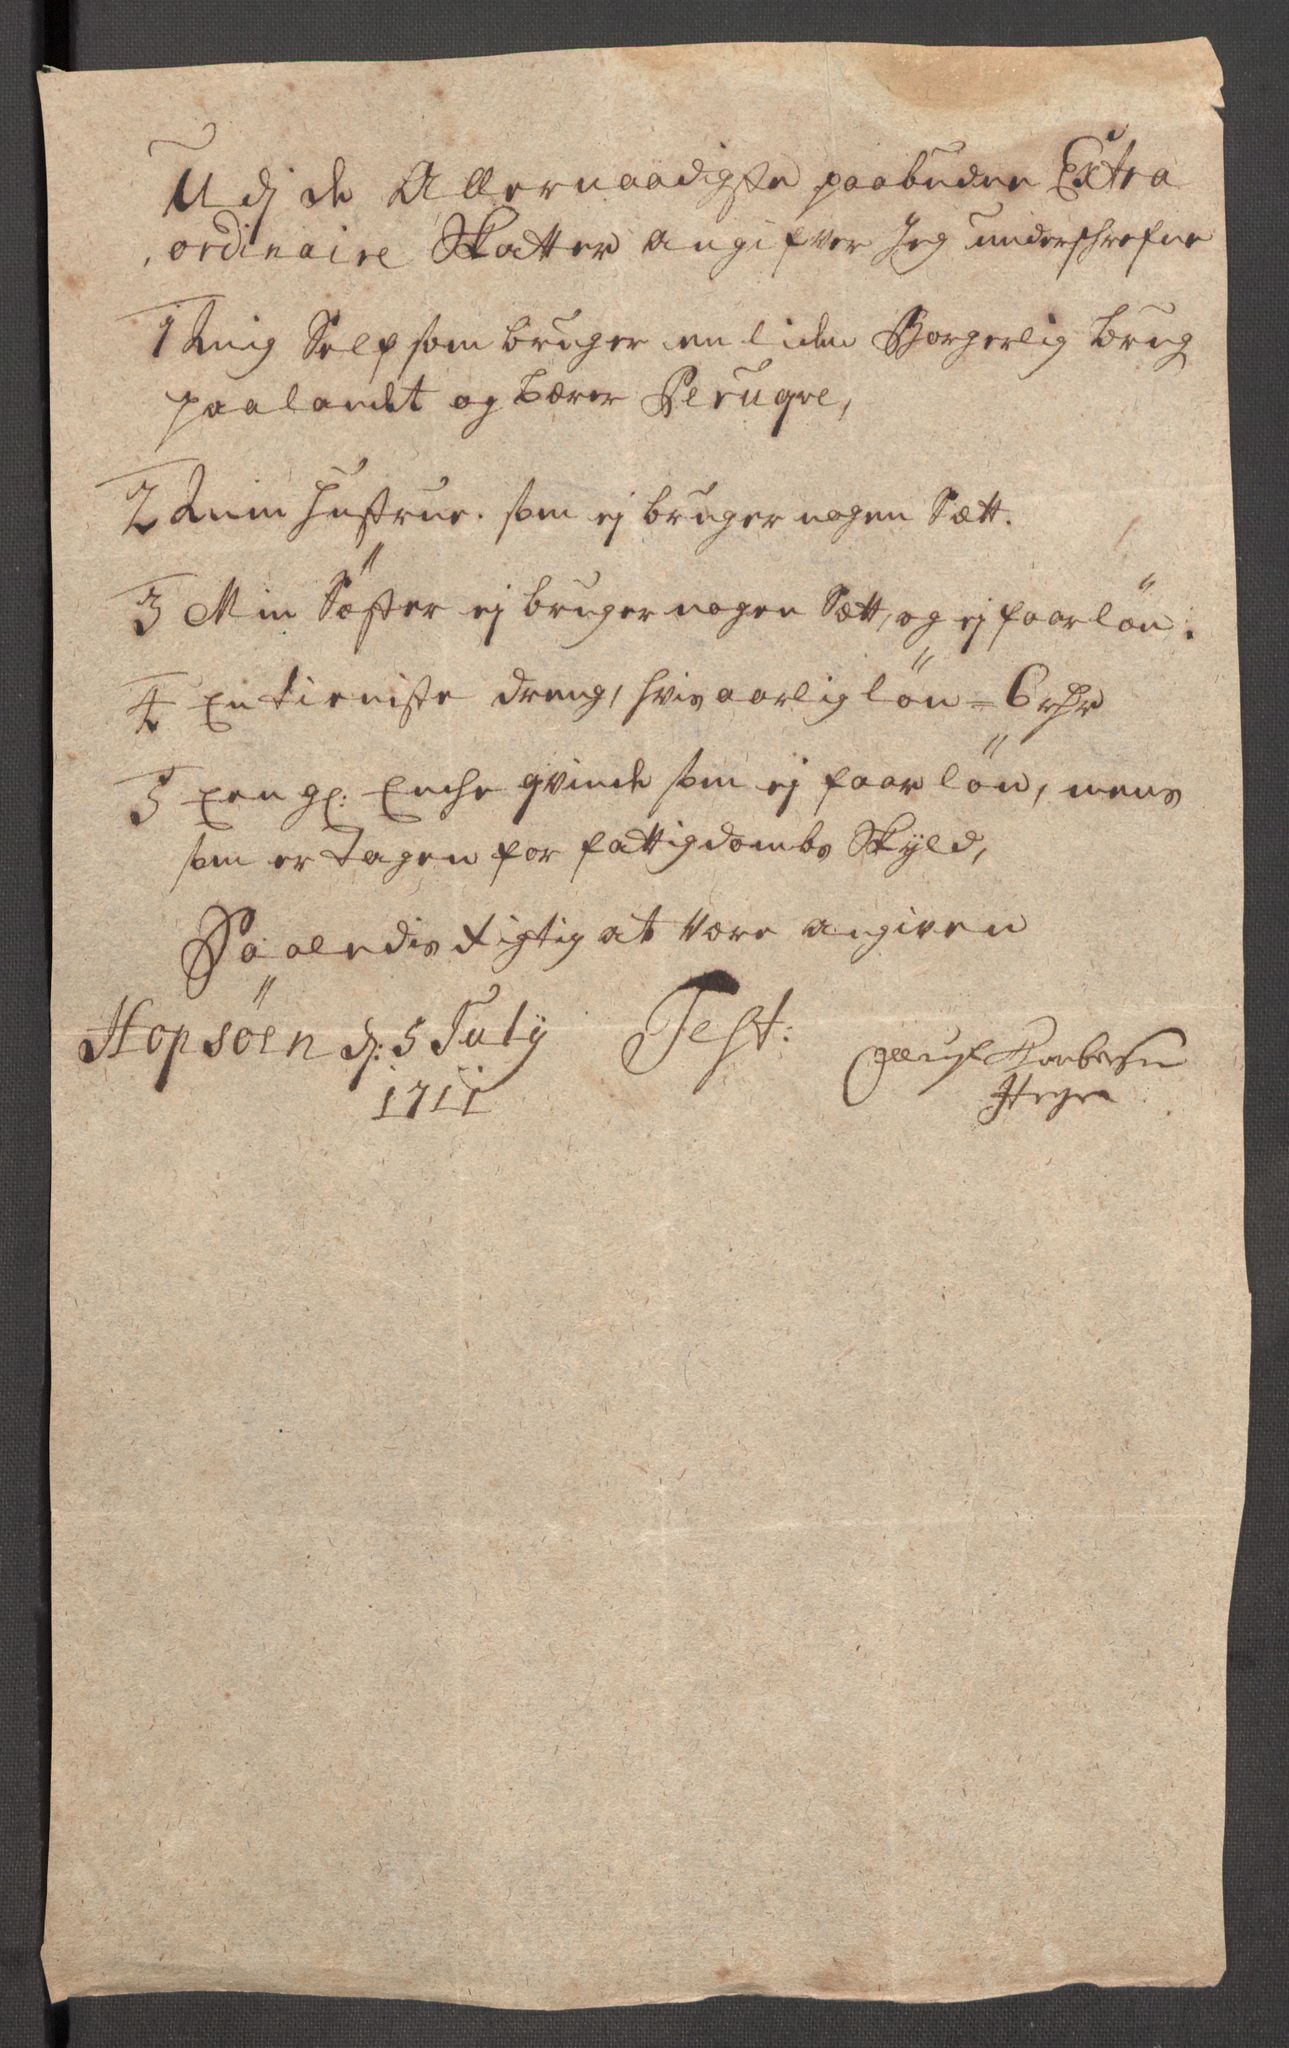 Udj de Allernaadigste paabudne Extra
ordinaire Skatter angifver Jeg underschrefne
1 Mig Self som bruger en liden Borgerlig brug
paa landet og bærer Peruqve,
2 Min Hustrue. som ej bruger nogen Sætt.
3 Min Söster ej bruger nogen Sætt, og ej faar lön.
4 En tieniste dreng, hvis aarlig lön = 6 rdr
5 Een gl: Enche qvinde som ej faar lön, mens
som er tagen for fattigdombs Skyld,
Saaledis rigtig at være angiven
Hopsöen d: 5 July Test:
1711